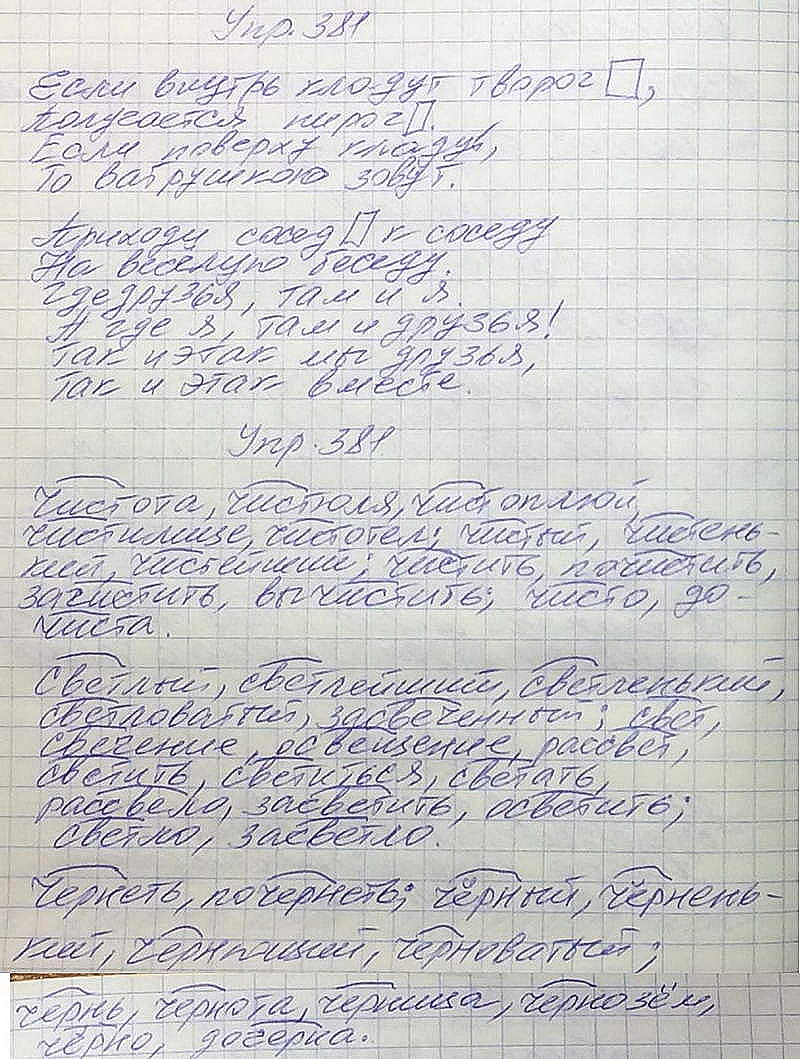 Упр. 381
Если внутрь кладут творог□,
Получается пирог□.
Если поверху кладут,
То ватрушкою зовут.
Приходи сосед□ к соседу
На весёлую беседу.
Где друзья, там и я.
А где я, там и друзья!
Так и этак мы друзья,
Так и этак вместе.
Упр. 381
Чистота, чистюля, чистоплюй,
чистилище, чистотел; чистый, чистень-
кий, чистейший; чистить, почистить,
зачистить, вычистить; чисто, до-
чиста.
Светлый, светлейший, светленький,
светловатый, засвеченный; свет,
свечение, освещение, рассвет,
светить, светиться, светать,
рассвело, засветить, осветить;
светло, засветло.
Чернеть, почернеть; чёрный, чёрнень-
кий, чернющий, черноватый;
чернь, чернота, черница, чернозём,
черно, дочерна.